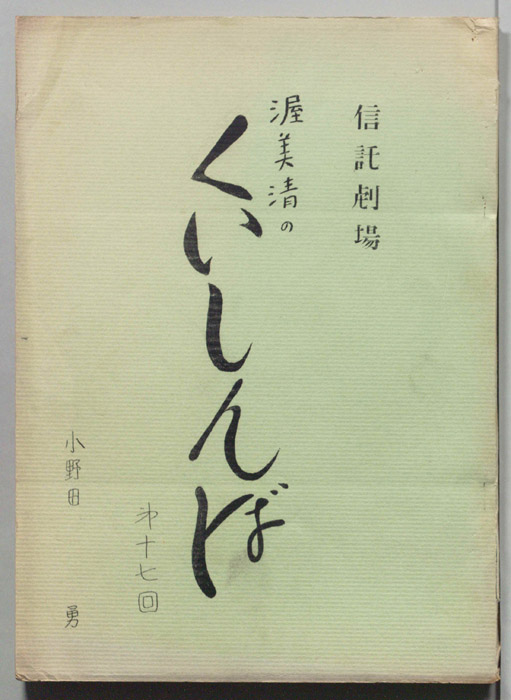 信託劇場
渥美清の
くいしんぼ
第十七回
小野田 勇